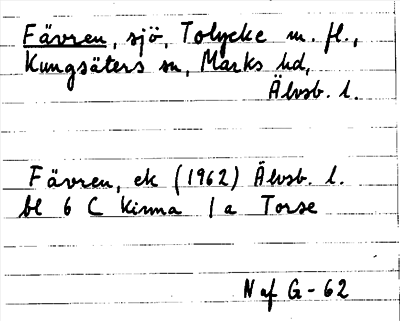 Fävren, sjö, Tolycke m. fl.,
Kungsäters sn, Marks hd,
Älvsb. l.
Fävren, ek (1962) Älvsb. l.
bl 6 C Kinna 1a Torse
N af G-62